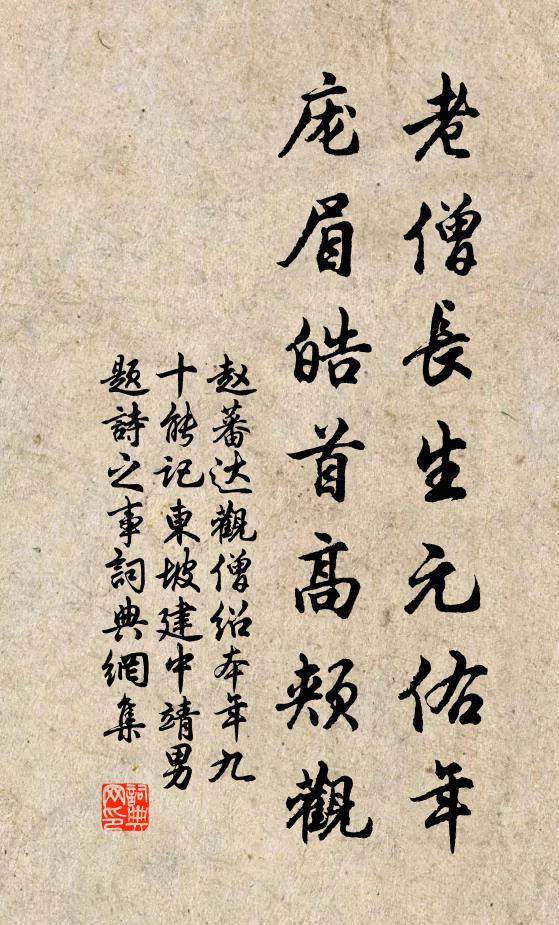 老僧長生元佑年
庞眉皓首高頰觀
赵蕃达觀僧绍本年九
十能记東坡建中靖男
题詩之事詞典網集
詞典網印